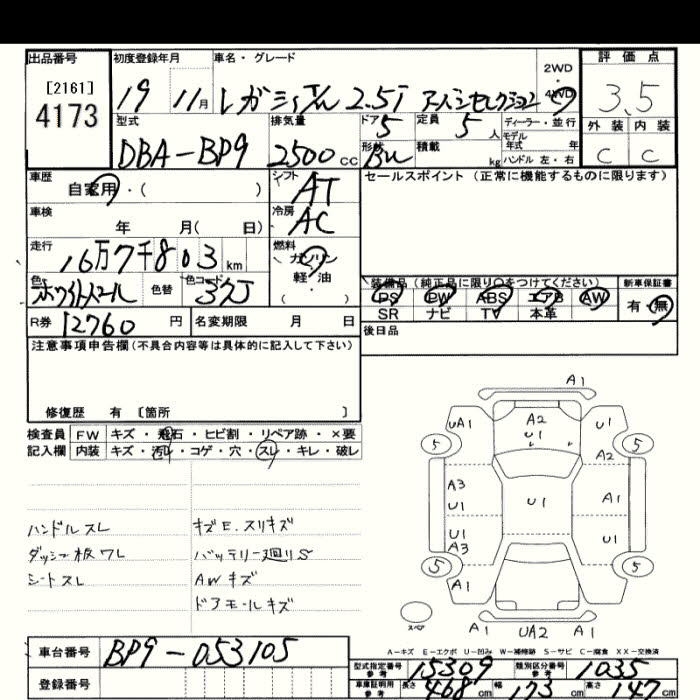 出品番号 初度登録年月 車名・グレード 評価点
[2161] 2WD
4173 19 11月 レガシィ 2.5i アーバンセレクション 4WD 3.5
型式 排気量 ドア 5 定員 5人 ディーラー・並行 外装 内装
モデル年式 年
DBA-BP9 2500cc 形状 積載 kg ハンドル 左・右 C C
車歴 シフト セールスポイント(正常に機能するものに限ります)
自家用・( ) AT
車検 冷房
年 月( 日) AC
走行 燃料
16万7千803km ガソリン
軽・油
色 ホワイトパール 色替 色コード ( ) 装備品(純正品に限り〇をつけてください) 新車保証書
PS PW ABS エアB AW 有・無
SR ナビ TV 本革
R券 12760円 名変期限 月 日 後日品
注意事項申告欄(不具合内容等は具体的に記入して下さい)
修復歴 有 〔箇所 〕
検査員 FW キズ・飛石・ヒビ割・リペア跡・×要
記入欄 内装 キズ・汚れ・コゲ・穴・スレ・キレ・破レ
ハンドルスレ キズE.スリキズ
ダッシュ板ワレ バッテリー廻りS
シートスレ AWキズ
ドアモールキズ
A1
UA1 A2 U1
U1
5 5
A2
A3
U1 U1 A1
U1 U1
A3
5 5
A1
スペア
A1 UA2 A1
A-キズ E-エクボ U-凹み W-補修跡 S-サビ C-腐食 XX-交換済
車台番号 BP9-053105
登録番号
型式指定番号 参考 15309 類別区分番号 参考 1035
車庫証明用 参考 長さ 468cm 幅 173cm 高さ 147cm